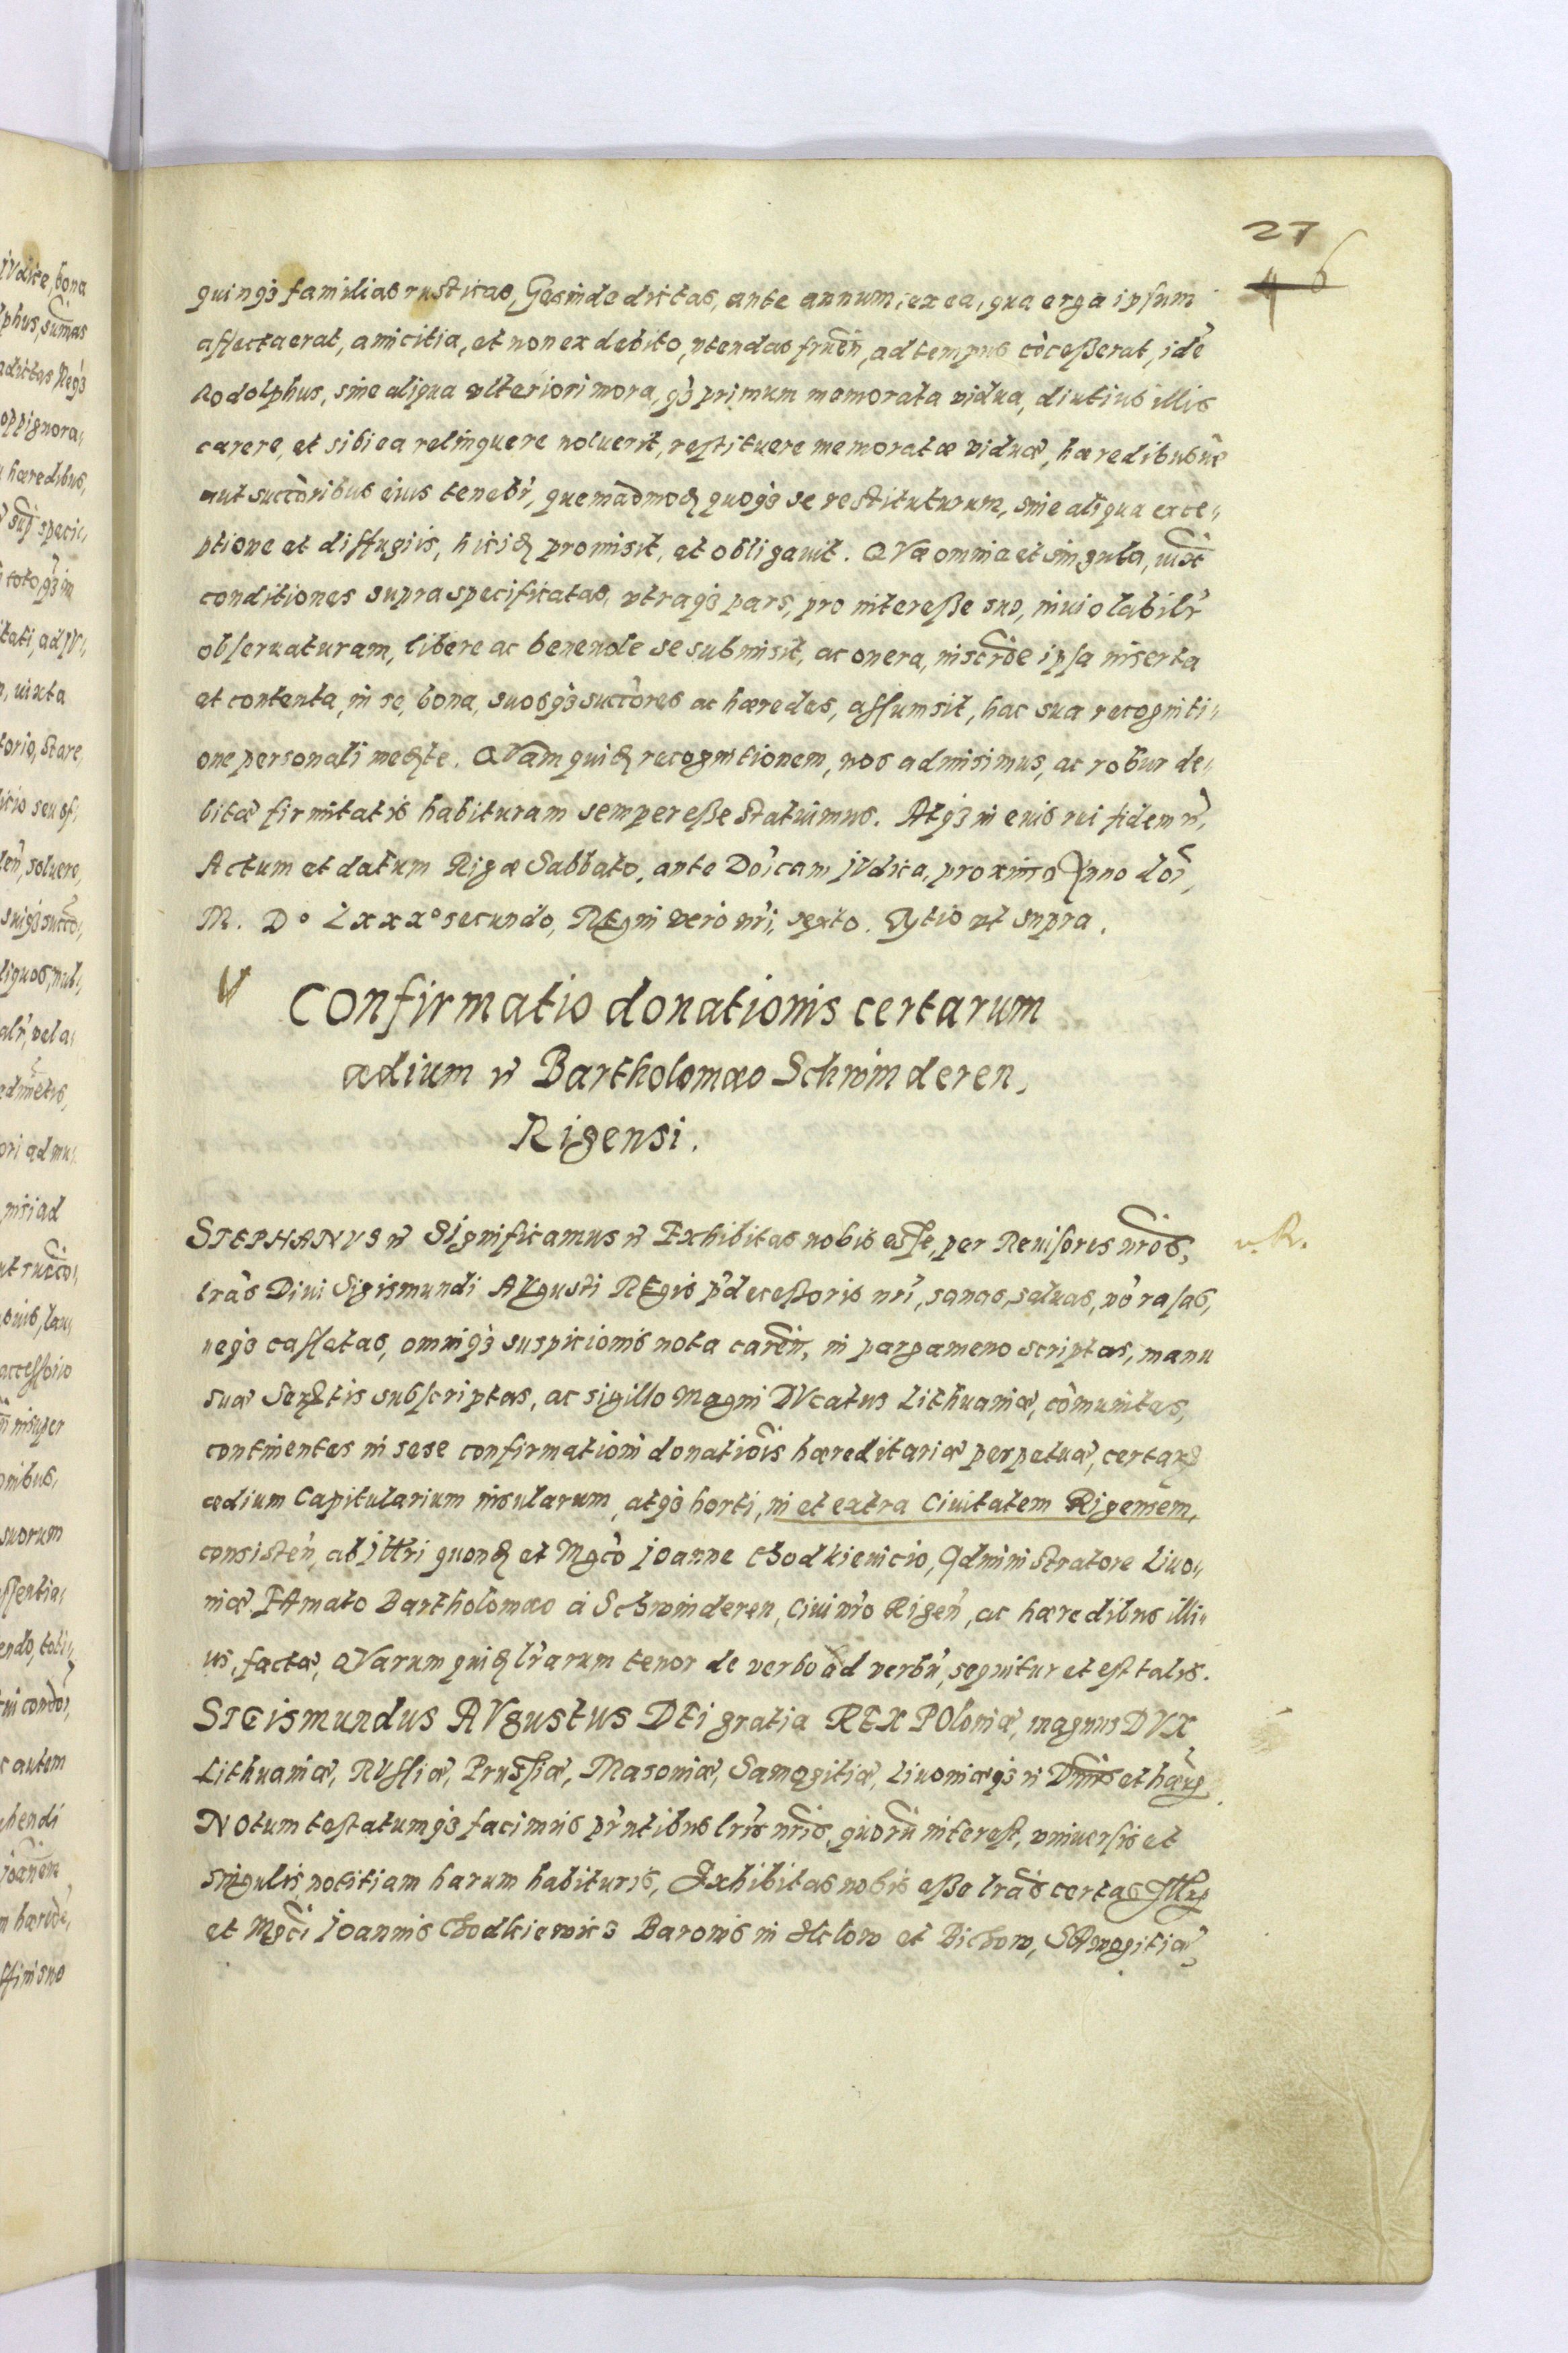 27
46
quinqȝ familias rusticas, Gesinde dictas, ante annum, ex ea, qua erga ipsum
affecta erat, amicitia, et non ex debito, vtendas fruen̄, ad tempus cōcesserat, idē
Rodolphus, sine aliqua vlteriori mora, qȝ primum memorata vidua, diutius illis
carere, et sibi ea relinquere noluerit, restituere memoratæ viduæ, hæredibus ue
aut succōribus eius teneb'r, quemadmoᶁ quoqȝ se restituturum, sine aliqua exce„
ptione et diffugiis, hiciᶁ promisit, et obligauit. QVæ omnia et singula, iuxt
conditiones supra specificatas, vtraqȝ pars, pro interesse suo, inuiolabil'r
obseruaturam, libere ac beneuole se submisit, ac onera, inscrōe ipsa inserta
et contenta, in se, bona, suosqȝ succōres ac hæredes, assumsit, hac sua recogniti„
one personali meᶁte. QVam quiᶁ recognitionem, nos admisimus, ac robur de„
bitæ firmitatis habituram semper esse statuimus. Atqȝ in eius rei fidem n̄,
Actum et datum Rigæ Sabbato, ante Do'icam jVdica, proximo Anno Do͞i,
M. D° Lxxx° secundo, REgni vero n'ri, sexto. Tytio vt supra.
COnfirmatio donationis certarum
ædium n̄ Bartholomæo Schwinderen,
Rigensi.
STEPHANVS n̄ SIgnificamus n̄ Exhibitas nobis esse, per Reuisores nr̄os,
v. R.
lrās Diui Sigismundi AVgusti REgis p'decessoris nr̄i, sanas, saluas, nō rasas,
neqȝ cassatas, omniqȝ suspicionis nota caren̄, in pargameno scriptas, manu
suæ Serᶁtis subscriptas, ac sigillo Magni DVcatus Lithuaniæ, cōmunitas,
continentes in sese confirmationem donatiōis hæreditariæ perpetuæ, certaꝝ
ædium Capitularium insularum, atqȝ horti, in et extra Ciuitatem Rigensem,
consisten̄, ab jll'ri quonᶁ et Mgcō joanne Chodkieuicio, Administratore Liuo„
niæ FAmato Bartholomæo à Schwinderen, Ciui nr̄o Rigen̄, ac hæredibus illi„
us, factæ, QVarum quiᶁ lr̄arum tenor de verbo ad verbū, sequitur et est talis.
SIGismundus AVgustus DEi gratia REX POloniæ, magnus DVX
Lithuaniæ, RVssiæ, Prussiæ, Masouiæ, Samogitiæ, Liuoniæqȝ n̄ Dn̄us et hæres
NOtum testatumqȝ facimus p'ntibus lr̄is nr̄is, quorū interest, vniuersis et
singulis notitiam harum habituris, Exhibitas nobis esse lrās certas Jll
et Mgc̄i joannis Chodkiewicȝ Baronis in Sklow et Bichow, SAmogitiæ